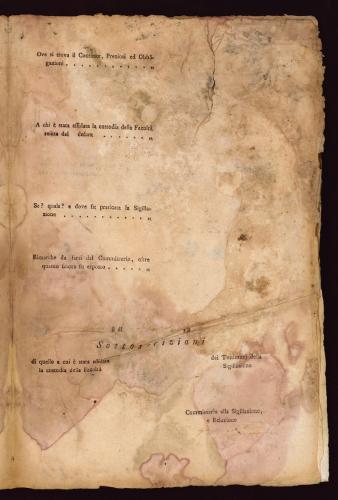 Ove si trova il Contante, Preziosi ed Obbli-
gazioni . . . . . . . . . . . „
A chi è stata affidata la custodia della Facoltà
relitta dal defunto . . . . . . . „
Se? quale? e dove fu praticata la Sigilla-
zione . . . . . . . . . . . „
Rimarche da farsi dal Commissario, oltre
quanto finora fu esposto . . . . . „
Sottoscrizioni
di quello a cui è stata affidata
la custodia della Facoltà
dei Testimonj della
Sigillazione
Commissario alla Sigillazione,
e Relazione